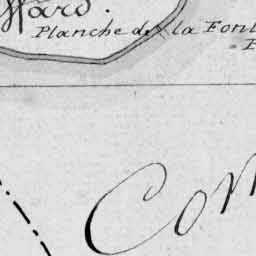 Ward.
Planche de la Font
Con